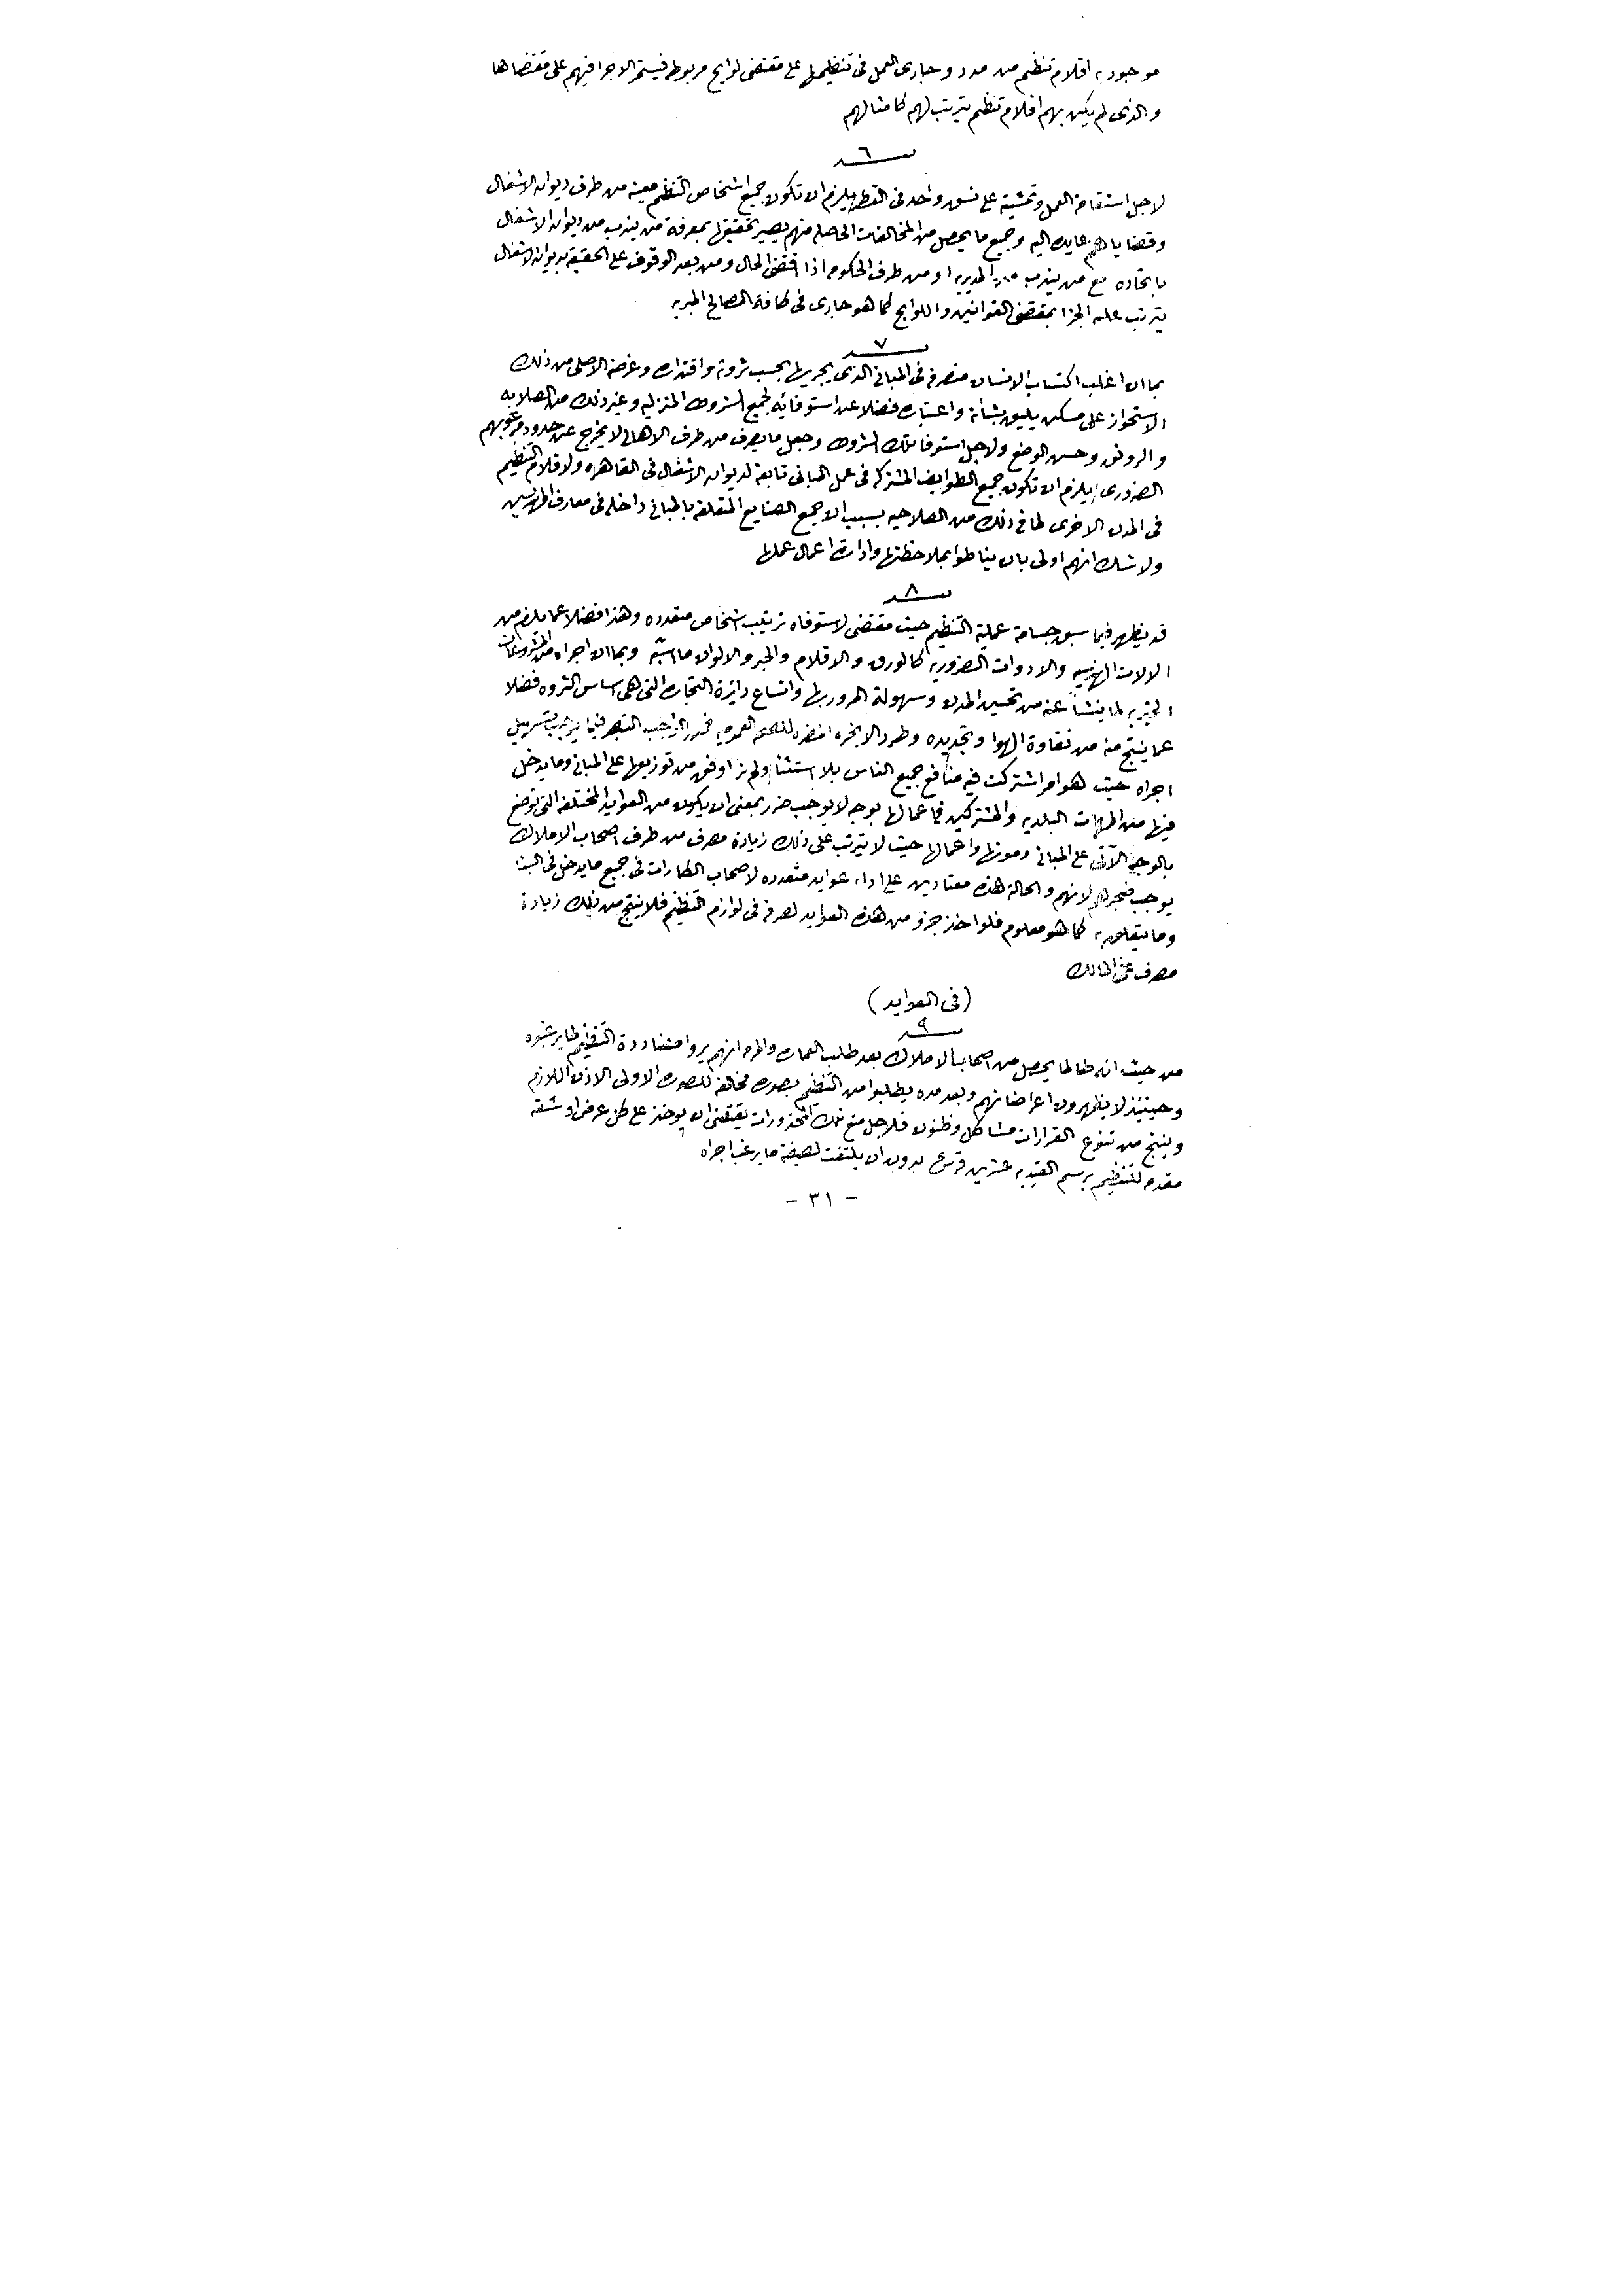 موجود به اقلام تنظيم من مدد وجارى العمل فى تنظيمها على مقتضى لوايح مربوطه فيستمر الاجرا فيهم على مقتضاها
والذى لم يكن بهم اقلام تنظيم يترتب لهم كامثالهم
٦
لاجل استقامة العمل وتمشيته على نسق واحد فى القطر يلزم ان تكون جميع اشخاص التنظيم معينه من طرف ديوان الاشغال
وقضاياهم عايده اليه وجميع ما يحصل من المخالفات الحاصله منهم يصير تحقيقها بمعرفة من يندب من ديوان الاشغال
باتحاده مع من يندب من المديريه او من طرف الحكومه اذا اقتضى الحال ومن بعد الوقوف على الحقيقه بديوان الاشغال
يترتب عليه الجزا بمقتضى القوانين واللوايح كما هو جارى فى كافة المصالح الميريه
٧
بما ان اغلب اكتساب الانسان منصرفه فى المبانى الذى يجريها بحسب ثروته واقتداره وغرضه الاصلى من ذلك
الاستحواز على مسكن يليق بشأنه واعتباره فضلا عن استوفائه لجميع الشروط المنزليه وغير ذلك من الصلابه
والرونق وحسن الوضع ولاجل استوفا تلك الشروط وجعل ما يصرف من طرف الاهالى لا يخرج عن حدود مرغوبهم
الضرورى يلزم ان تكون جميع الطوايف المشتركه فى عمل المبانى تابعة لديوان الاشغال فى القاهره ولاقلام التنظيم
فى المدن الاخرى لما فى ذلك من الصلاحيه بسبب ان جميع الصنايع المتعلقه بالمبانى داخله فى معارف المهندسين
ولا شك انهم اولى بان يناطوا بملاحظتها وادارة اعمال عملها
٨
قد يظهر فيما سبق جسامة عملية التنظيم حيث مقتضى لاستوفاه ترتيب اشخاص متعدده وهذا فضلا عما يلزم من
الالات الهندسيه والادوات الضروريه كالورق والاقلام والحبر والالوان ما اشبه وبما ان اجراه من المشروعات
الخيريه لما ينشأ عنه من تحسين المدن وسهولة المرور بها واتساع دائرة التجاره التى هى اساس الثروه فضلا
عما ينتج منه من نقاوة الهوا وتجديده وطرد الابخره المضره للصحه العموميه فمن الواجب التبصر فيما يوجب تسهيل
اجراه حيث هو امر اشتركت فيه منافع جميع الناس بلا استثنا ولم نر اوفق من توزيعها على المبانى وما يدخل
فيها من المهمات البلديه والمشتركين فى اعمالها بوجه لا يوجب ضرر بمعنى ان يكون من العوايد المختلفه التى توضع
بالوجه الآتى على المبانى ومونها واعمالها حيث لا يترتب على ذلك زيادة مصرف من طرف اصحاب الاملاك
يوجب ضجرهم لانهم والحالة هذه معتادين على اداء عوايد متعدده لاصحاب الكارات فى جميع ما يدخل فى البنا
وما يتعلق به كما هو معلوم فلو اخذ جزو من هذه العوايد لصرفه فى لوازم التنظيم فلا ينتج من ذلك زيادة
مصرف على المالك
(فى العوايد)
٩
من حيث انه طالما يحصل من اصحاب الاملاك بعد طلب العماره والمرمه انهم يروا مضاددة التنظيم لما يرغبوه
وحينئذ لا يظهرون اعراضاتهم وبعد مده يطلبوا من التنظيم بصوره مخالفه للصوره الاولى الاذن اللازم
وينتج من تنوع القرارات مشاكل وظنون فلاجل منع تلك المحذورات يقتضى ان يوخذ على كل عرض او شقه
مقدمه للتنظيم برسم القيديه عشرين قرش بدون ان يلتفت لصيغة ما يرغب اجراه
- ٣١ -